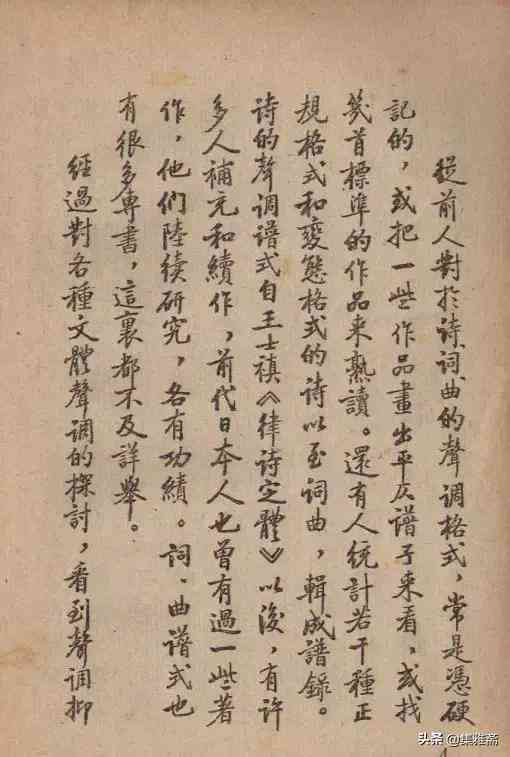 從前人對於诗、詞、曲的聲调格式，常是憑硬
記的，或把一些作品畫出平仄谱子来看，或找
幾首標準的作品来熟讀。還有人统計若干種正
規格式和變態格式的诗以至词曲，輯成譜錄。
诗的聲调谱式自王士禛《律诗定體》以後，有許
多人補充和續作，前代日本人也曾有過一些著
作，他們陸續研究，各有功績。詞、曲谱式也
有很多專書，這裏都不及詳舉。
經過對各種文體聲调的探討，看到聲调抑
头条@集雅斋